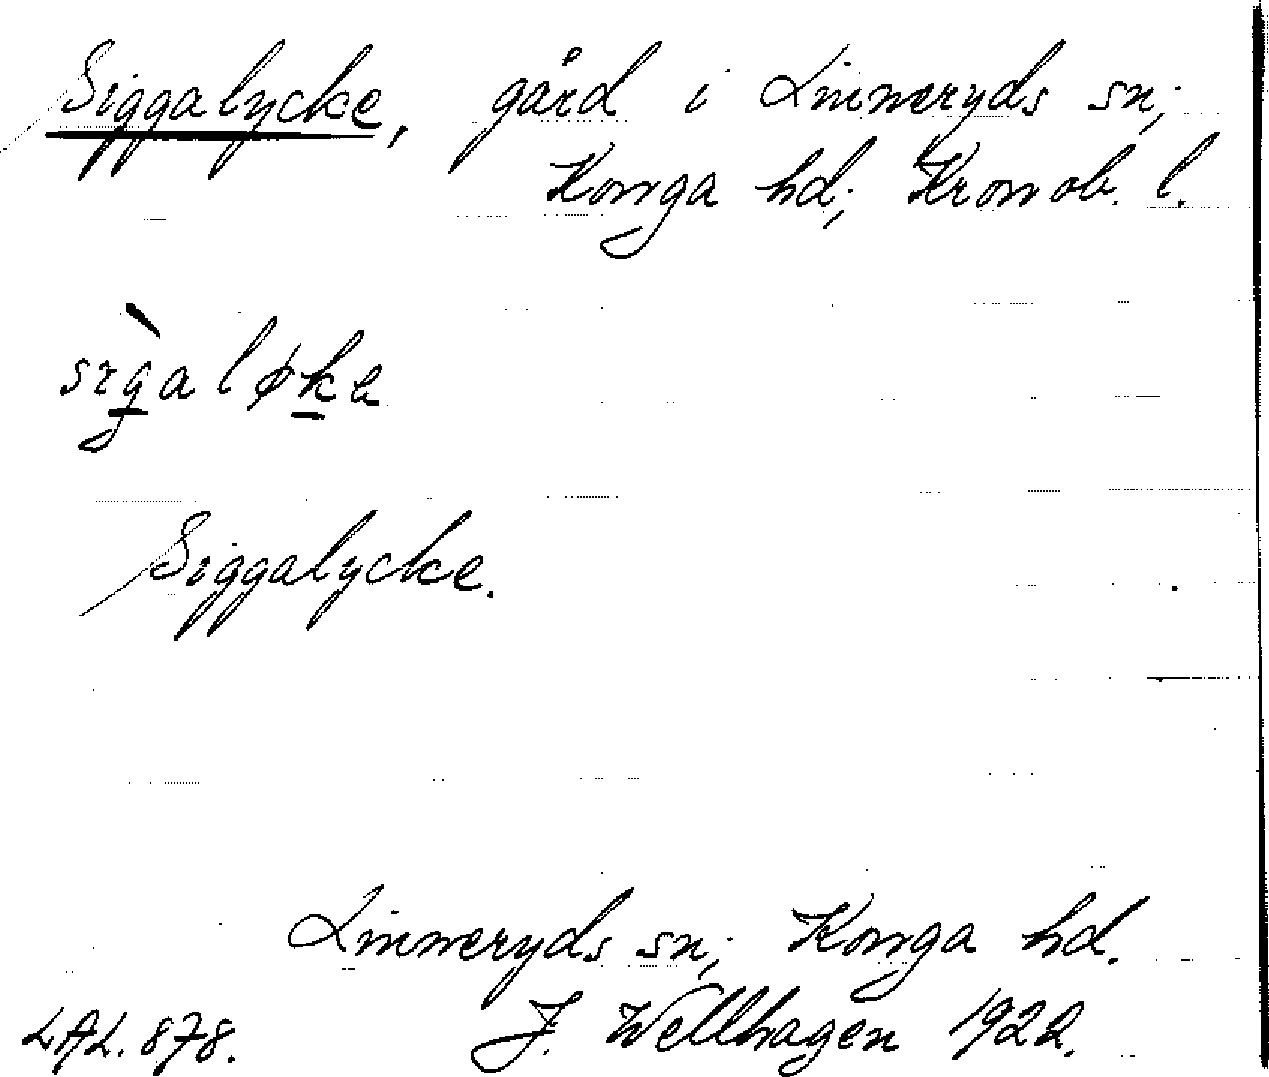 Siggalycke, gård i Linneryds sn;
Konga hd; Kronob. l.
sɪ̀g̲aløk̲e
Siggalycke.
Linneryds sn; Konga hd.
LAL. 878. J. Wellhagen 1922.